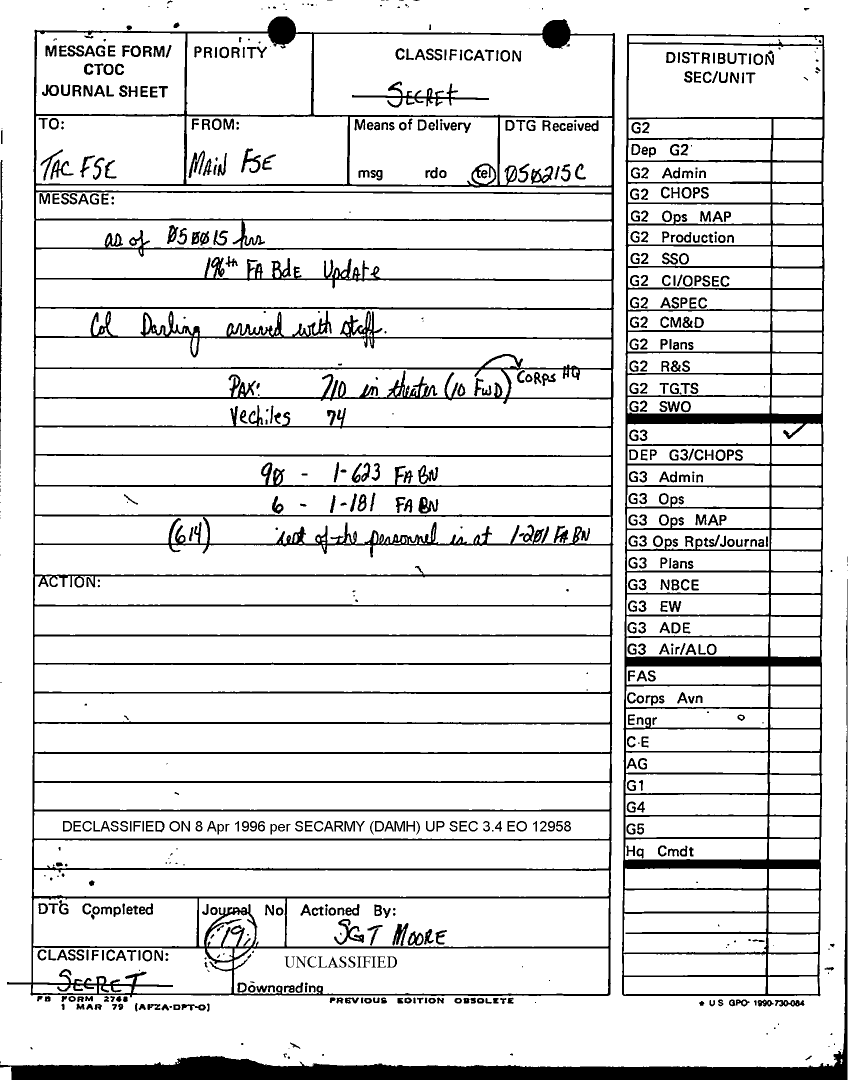 MESSAGE FORM/
CTOC
JOURNAL SHEET
PRIORITY
CLASSIFICATION
SECRET
TO:
TAC FSE
FROM:
MAIN FSE
Means of Delivery
msg rdo tel
DTG Received
050215C
MESSAGE:
as of 050015 hrs
196th FA Bde Update
Col Darling arrived with staff.
PAX: 710 in theater (10 FWD) CORPS HQ
Vechiles 74
90 - 1-623 FA BN
6 - 1-181 FA BN
(614) rest of the personnel is at 1-201 FA BN
ACTION:
DECLASSIFIED ON 8 Apr 1996 per SECARMY (DAMH) UP SEC 3.4 EO 12958
DTG Completed
Journal No
19
Actioned By:
SGT MOORE
CLASSIFICATION:
SECRET
UNCLASSIFIED
Downgrading
FB FORM 2748
1 MAR 79 (AFZA-DPT-O)
PREVIOUS EDITION OBSOLETE
DISTRIBUTION
SEC/UNIT
G2
Dep G2
G2 Admin
G2 CHOPS
G2 Ops MAP
G2 Production
G2 SSO
G2 CI/OPSEC
G2 ASPEC
G2 CM&D
G2 Plans
G2 R&S
G2 TGTS
G2 SWO
G3 ✓
DEP G3/CHOPS
G3 Admin
G3 Ops
G3 Ops MAP
G3 Ops Rpts/Journal
G3 Plans
G3 NBCE
G3 EW
G3 ADE
G3 Air/ALO
FAS
Corps Avn
Engr
C-E
AG
G1
G4
G5
Hq Cmdt
★ U S GPO· 1990-730-084